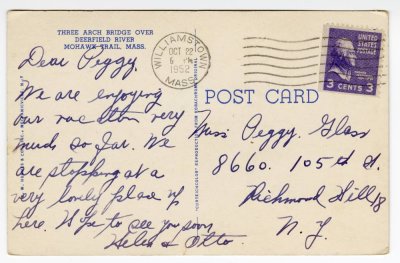 THREE ARCH BRIDGE OVER
DEERFIELD RIVER
MOHAWK TRAIL, MASS.
Dear Peggy,
We are enjoying
our vacation very
much so far. We
are stopping at a
very lovely place up
here. Hope to see you soon
Helen & Otto.
WILLIAMSTOWN
OCT 22
6 PM
1952
MASS.
UNITED
STATES
POSTAGE
3 CENTS 3
POST CARD
Miss Peggy Glass
8660. 105th St.
Richmond Hill 18
N. Y.